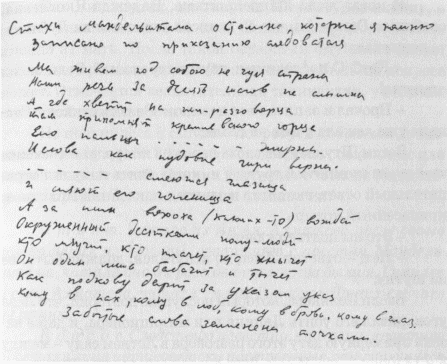 Стихи Мандельштама о Сталине которые я помню
Записано по приказанию следователя
Мы живем под собою не чуя страны
Наши речи за десять шагов не слышны
А где хватит на пол-разговорца
Там припомнят кремлевского горца
Его пальцы - - - - жирны.
И слова как пудовые гири верны.
- - - - смеются глазища
и сияют его голенища
А за ним (каких-то) вождей
Окруженный десятками полу-людей
Кто мяучит, кто плачет, кто хнычет
Он один лишь бабачит и тычет
Как подкову дарит за указом указ
Кому в пах, кому в лоб, кому в бровь, кому в глаз.
Забытые слова заменены точками.